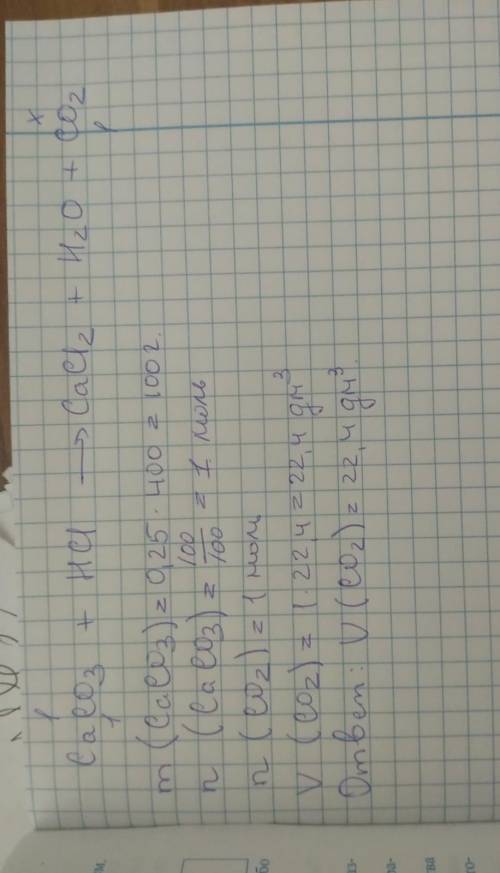 1 x
CaCO₃ + HCl → CaCl₂ + H₂O + CO₂
1 1
m (CaCO₃) = 0,25 · 400 = 100 г.
n (CaCO₃) = 100/100 = 1 моль
n (CO₂) = 1 моль
V (CO₂) = 1 · 22,4 = 22,4 дм³
Ответ: V (CO₂) = 22,4 дм³.